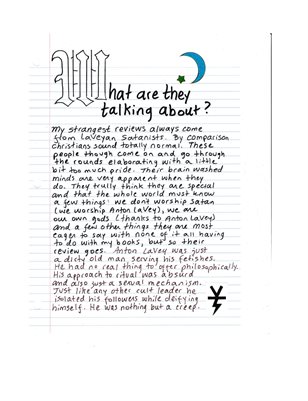 What are they
talking about?
My strangest reviews always come
from LaVeyan Satanists. By comparison
Christians sound totally normal. These
people though come on and go through
the rounds elaborating with a little
bit too much pride. Their brain washed
minds are very apparent when they
do. They trully think they are special
and that the whole world must know
a few things: we don't worship Satan
(we worship Anton LaVey), we are
our own gods (thanks to Anton LaVey)
and a few other things they are most
eager to say with none of it all having
to do with my books, but so their
review goes. Anton LaVey was just
a dirty old man serving his fetishes.
He had no real thing to offer philosophically.
His approach to ritual was absurd
and also just a sexual mechanism.
Just like any other cult leader he
isolated his followers while deifying
himself. He was nothing but a creep.